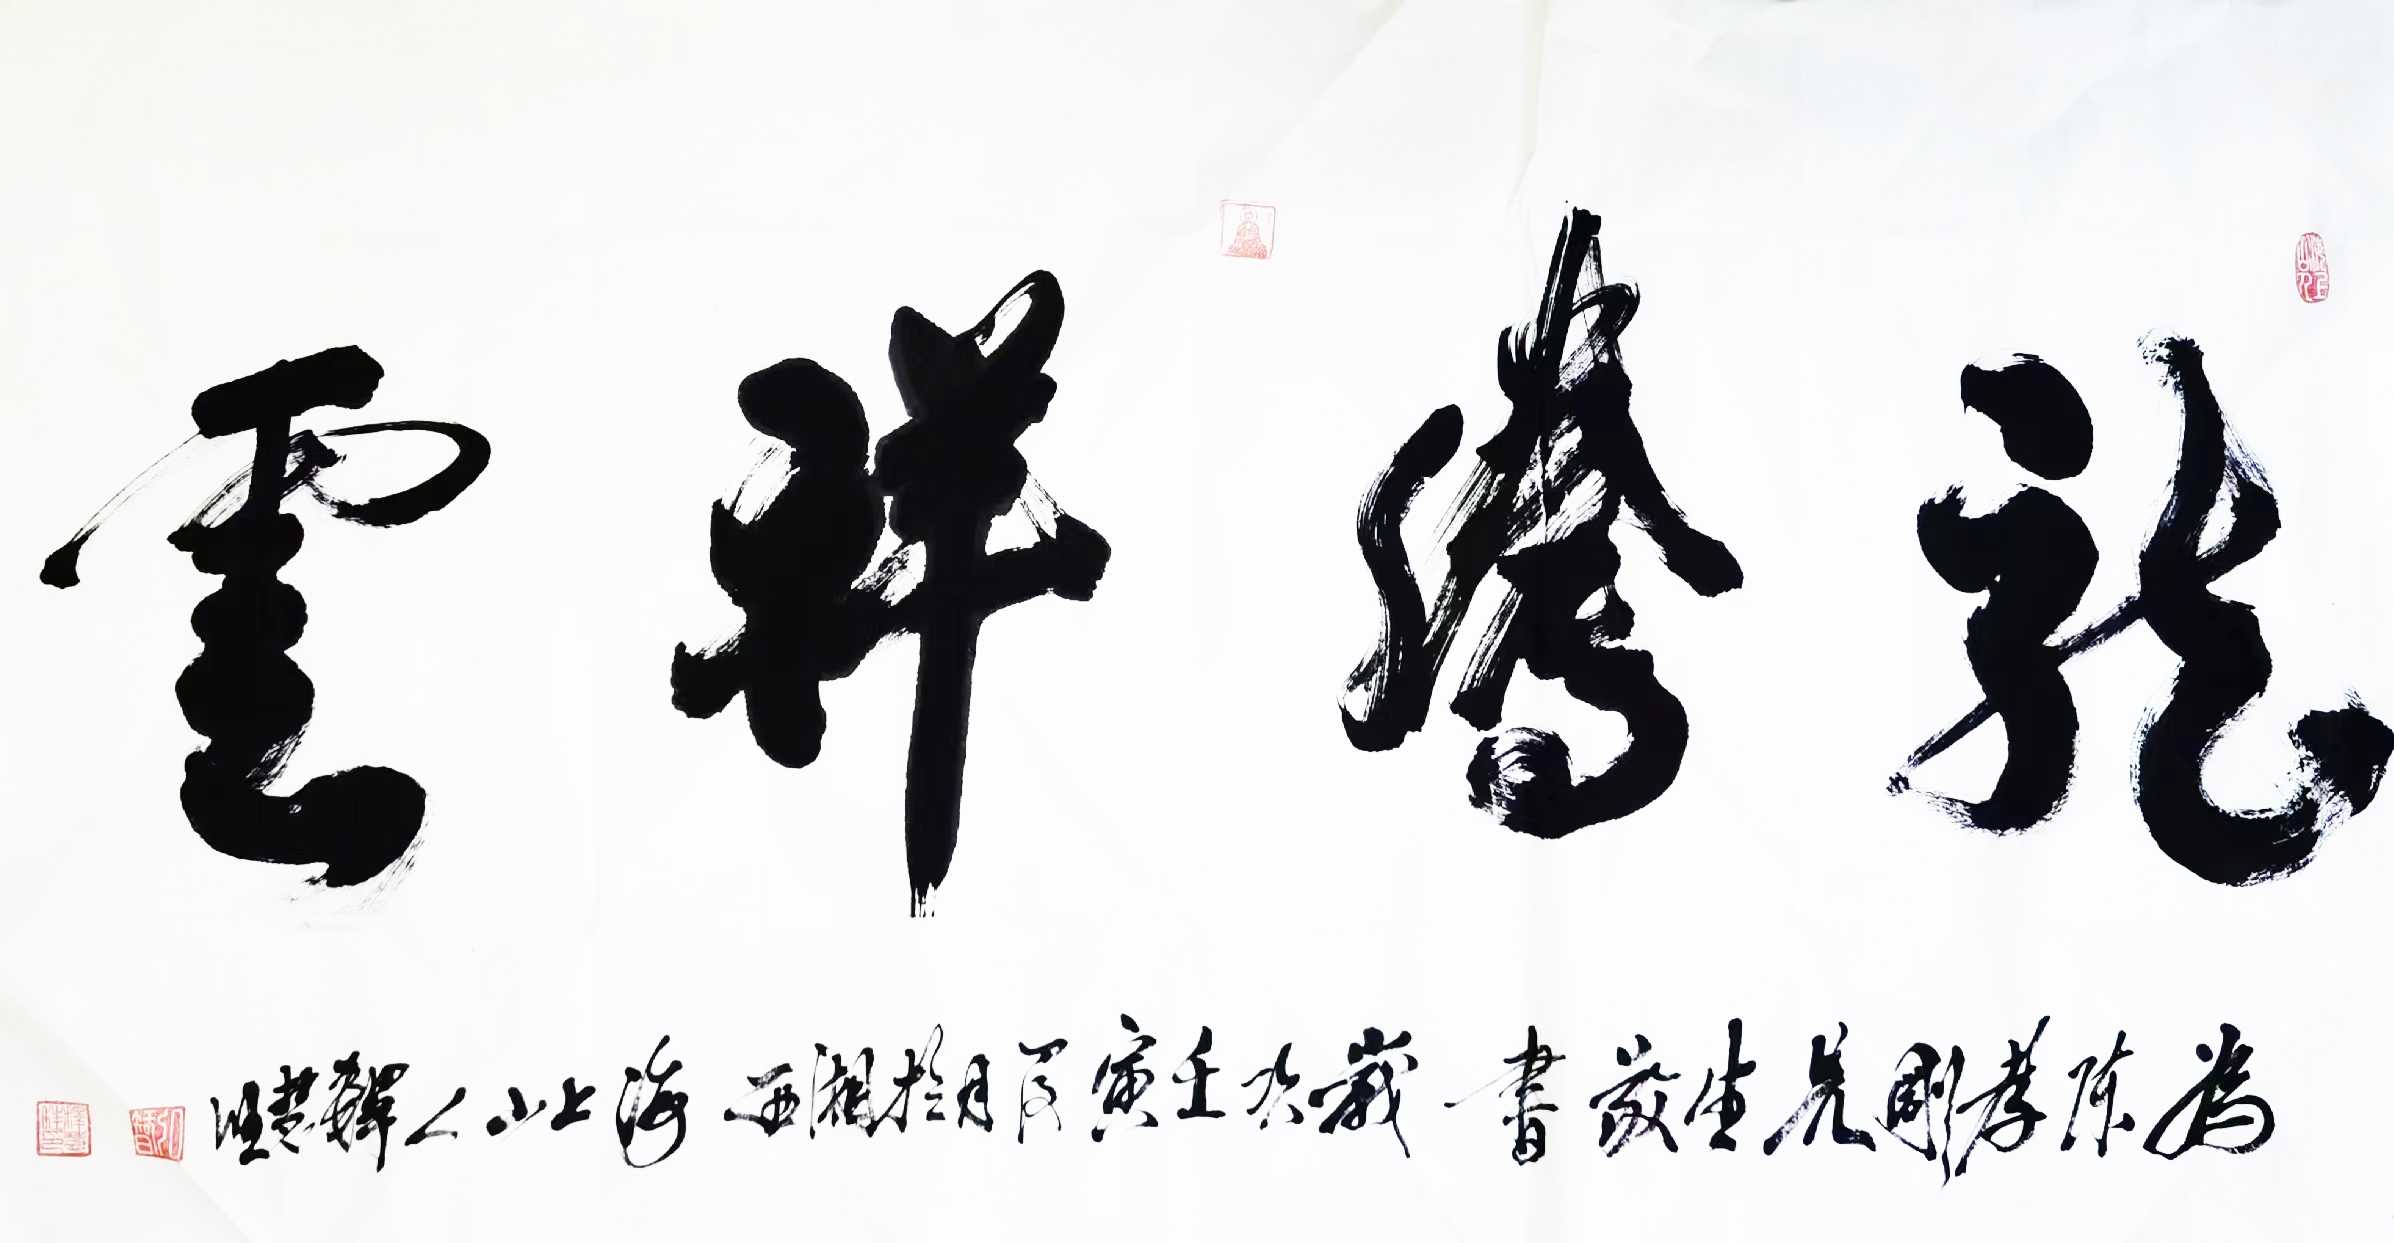 龍騰祥雲
為陳孝剛先生敬書 歲次壬寅夏月於湘西 海上山人韓慧